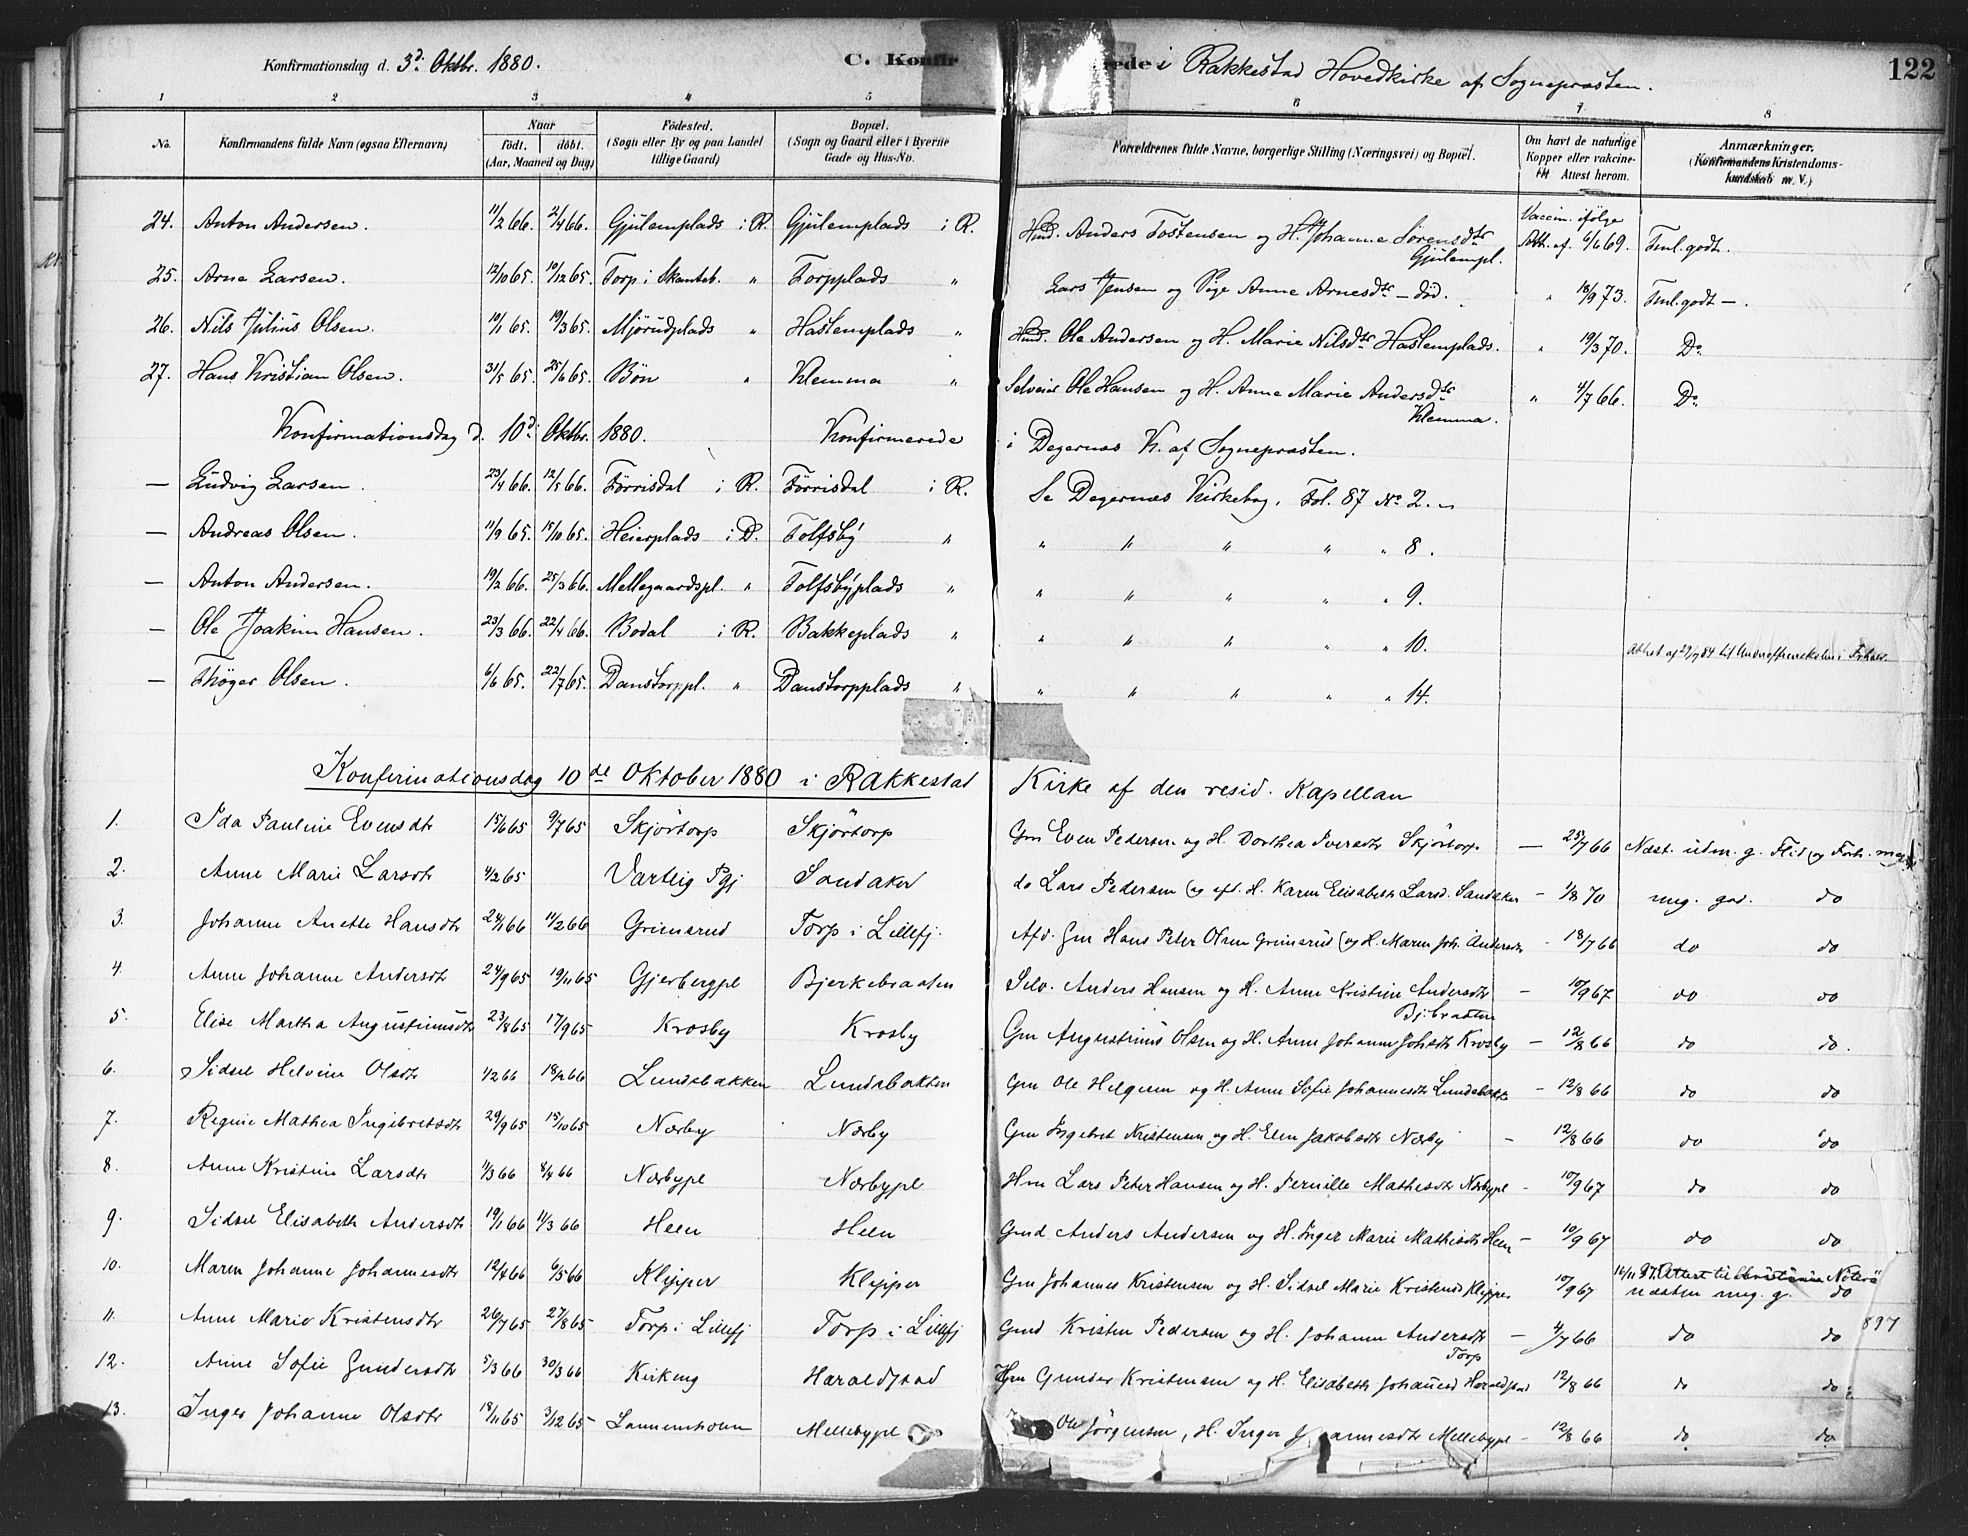 Konfirmationsdag d. 3d. Oktbr. 1880. C. Konfir rede i Rakkestad Hovedkirke af Sognepræsten. 122
1 2 3 4 5 6 7 8
No. Konfirmandens fulde Navn (ogsaa Efternavn) Naar født. døbt. (Aar, Maaned og Dag) Fødested. (Sogn eller By og paa Landet tillige Gaard) Bopæl. (Sogn og Gaard eller i Byerne Gade og Hus-No. Forældrenes fulde Navne, borgerlige Stilling (Næringsvei) og Bopæl. Om havt de naturlige Kopper eller vaccineret Attest herom. Anmærkninger. (Konfirmandens Kristendomskundskab m. V.)
24. Anton Andersen. 11/2 66. 2/4 66. Gjulemplads i R. Gjulemplads i R. Husd. Anders Tostensen og H. Johanne Sørensdtr Gjulempl. Vaccin. ifølge Att. af 6/6 69. Tml. godt.
25. Arne Larsen. 12/10 65. 10/12 65. Torp i Skanteb. " Torpplads " Lars Jensen og Pige Anne Arnesdtr — død. " 18/9 73. Tml. godt —.
26. Nils Julius Olsen. 19/1 65. 19/3 65. Mjørudplads " Haslemplads " Husd. Ole Andersen og H. Marie Nilsdtr Haslemplads. " 19/3 70. Do
27. Hans Kristian Olsen. 31/5 65. 25/6 65. Bøn " Klemma " Selveier Ole Hansen og H. Anne Marie Andersdtr Klemma. " 4/7 66. Do
Konfirmationsdag d. 10d. Oktbr. 1880. Konfirmerede i Degernæs K. af Sognepræsten.
— Ludvig Larsen. 23/4 66. 12/5 66. Førrisdal i R. Førrisdal i R. Se Degernæs Kirkebog, Fol. 87 No 2.
— Andreas Olsen. 11/9 65. 15/10 65. Heierplads i D. Tolfsby " " " " " " 8.
— Anton Andersen. 19/2 66. 25/3 66. Mellegaardspl. " Tolfsbyplads " " " " " " 9.
— Ole Joakim Hansen. 23/3 66. 22/4 66. Bodal i R. Bakkeplads " " " " " " 10.
— Thøger Olsen. 6/6 65. 22/7 65. Danstorppl. " Danstorpplads " " " " " " 14.
Konfirmationsdag 10de Oktober 1880 i Rakkestad Kirke af den resid. Kapellan
1. Ida Pauline Evensdtr 15/6 65 9/7 65 Skjørtorp Skjørtorp Gm Even Pedersen og H. Dorthea Iversdtr Skjørtorp — 25/7 66 Næst. udm. g. Flid og Forh.
2. Anne Marie Larsdtr 4/2 65 Varteig Pgj Sandaker do Lars Pedersen og H. Karen Elisabeth Larsd. Sandaker — 1/8 70 mg. god. do
3. Johanne Anette Hansdtr 24/1 66 11/2 66 Grimsrud Torp i Lillefj. Afd. Gm Hans Peter Olsen Grimsrud og H. Maren Joh. Andersdtr - 18/7 66 do do
4. Anne Johanne Andersdtr 24/9 65 19/11 65 Gjerbergpl Bjerkebraaten Selv. Anders Hansen og H. Anne Kristine Andersdtr Bj.braaten — 10/9 67 do do
5. Elise Martha Augustinusdtr 23/8 65 17/9 65 Krosby Krosby Gm Augustinus Olsen og H. Anne Johanne Johsdtr Krosby — 12/8 66 do do.
6. Sidsel Helvine Olsdtr 1/2 66 18/2 66 Lundebakken Lundebakken Gm Ole Helgesen og H. Anne Sofie Johannesdtr Lundebakk — 12/8 66 do do
7. Regine Mathea Ingebretsdtr 29/9 65 15/10 65 Nærby Nærby Gm Ingebret Kristensen og H. Elen Jakobsdtr Nærby — 12/8 66 do do
8. Anne Kristine Larsdtr 1/3 66 8/4 66 Nærbypl Nærbypl Hm Lars Peter Hansen og H. Pernille Mathisdtr Nærbypl - 10/9 67 do do
9. Sidsel Elisabeth Andersdtr 19/1 66 11/3 66 Heen Heen Gmd Anders Andersen og H. Inger Marie Mathisdtr Heen — 10/9 67 do do
10. Maren Johanne Johannesdtr 12/4 66 6/5 66 Klypper Klypper Gm Johannes Kristensen og H. Sidsel Marie Kristensd Klypper 10/9 67 næsten mg. g. do
11. Anne Marie Kristensdtr 26/7 65 27/8 65 Torp i Lillefj Torp i Lillefj Gmd Kristen Pedersen og H. Johanne Andersdtr Torp — 4/7 66 do do
12. Anne Sofie Gundersdtr 5/3 66 30/3 66 Kirkeng Haraldstad Gm Gunder Kristensen og H. Elisabeth Johannesd Haraldstad 12/8 66 do do
13. Inger Johanne Olsdtr 18/11 65 3/12 65 Mellebypl Ole Jørgensen, H. Inger Mellebypl — 12/8 66 do do